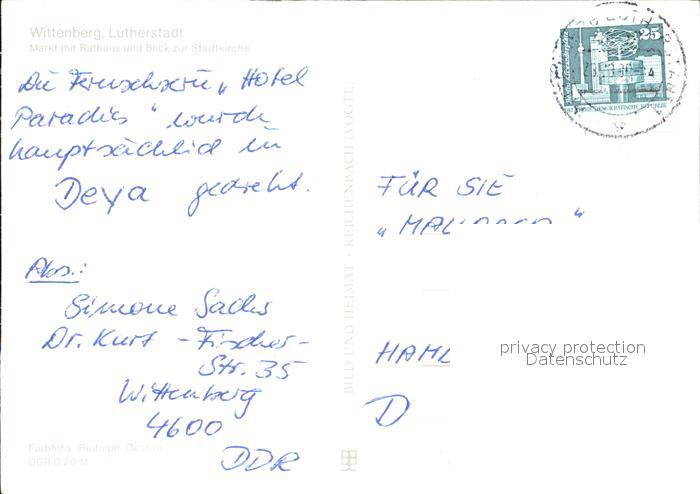 Wittenberg, Lutherstadt
Markt mit Rathaus und Blick zur Stadtkirche
Die Fernsehserie „Hotel
Paradies" wurde
hauptsächlich in
Deya gedreht.
Abs.:
Simone Sachs
Dr. Kurt-Fischer-
Str. 35
Wittenberg
4600
DDR
Farbfoto: Rudolph, Dessau
DDR 0,20 M
BILD UND HEIMAT · REICHENBACH (VOGTL)
25
DEMOKRATISCHE REPUBLIK
FÜR SIE
„MAL
HAM
D
privacy protection
Datenschutz